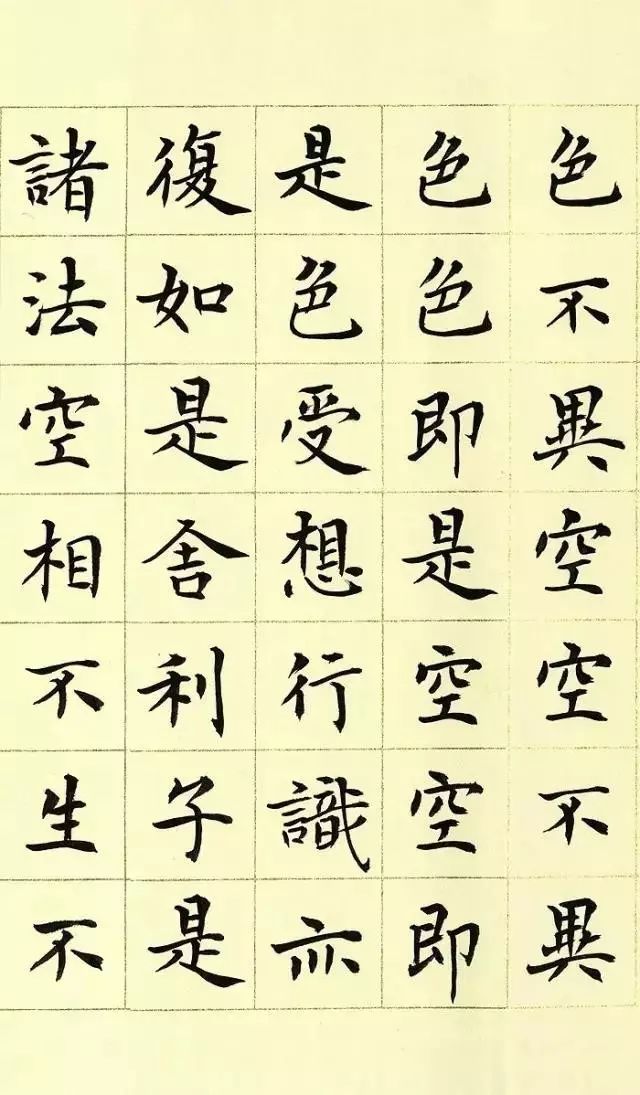 色不異空空不異
色色即是空空即
是色受想行識亦
復如是舍利子是
諸法空相不生不